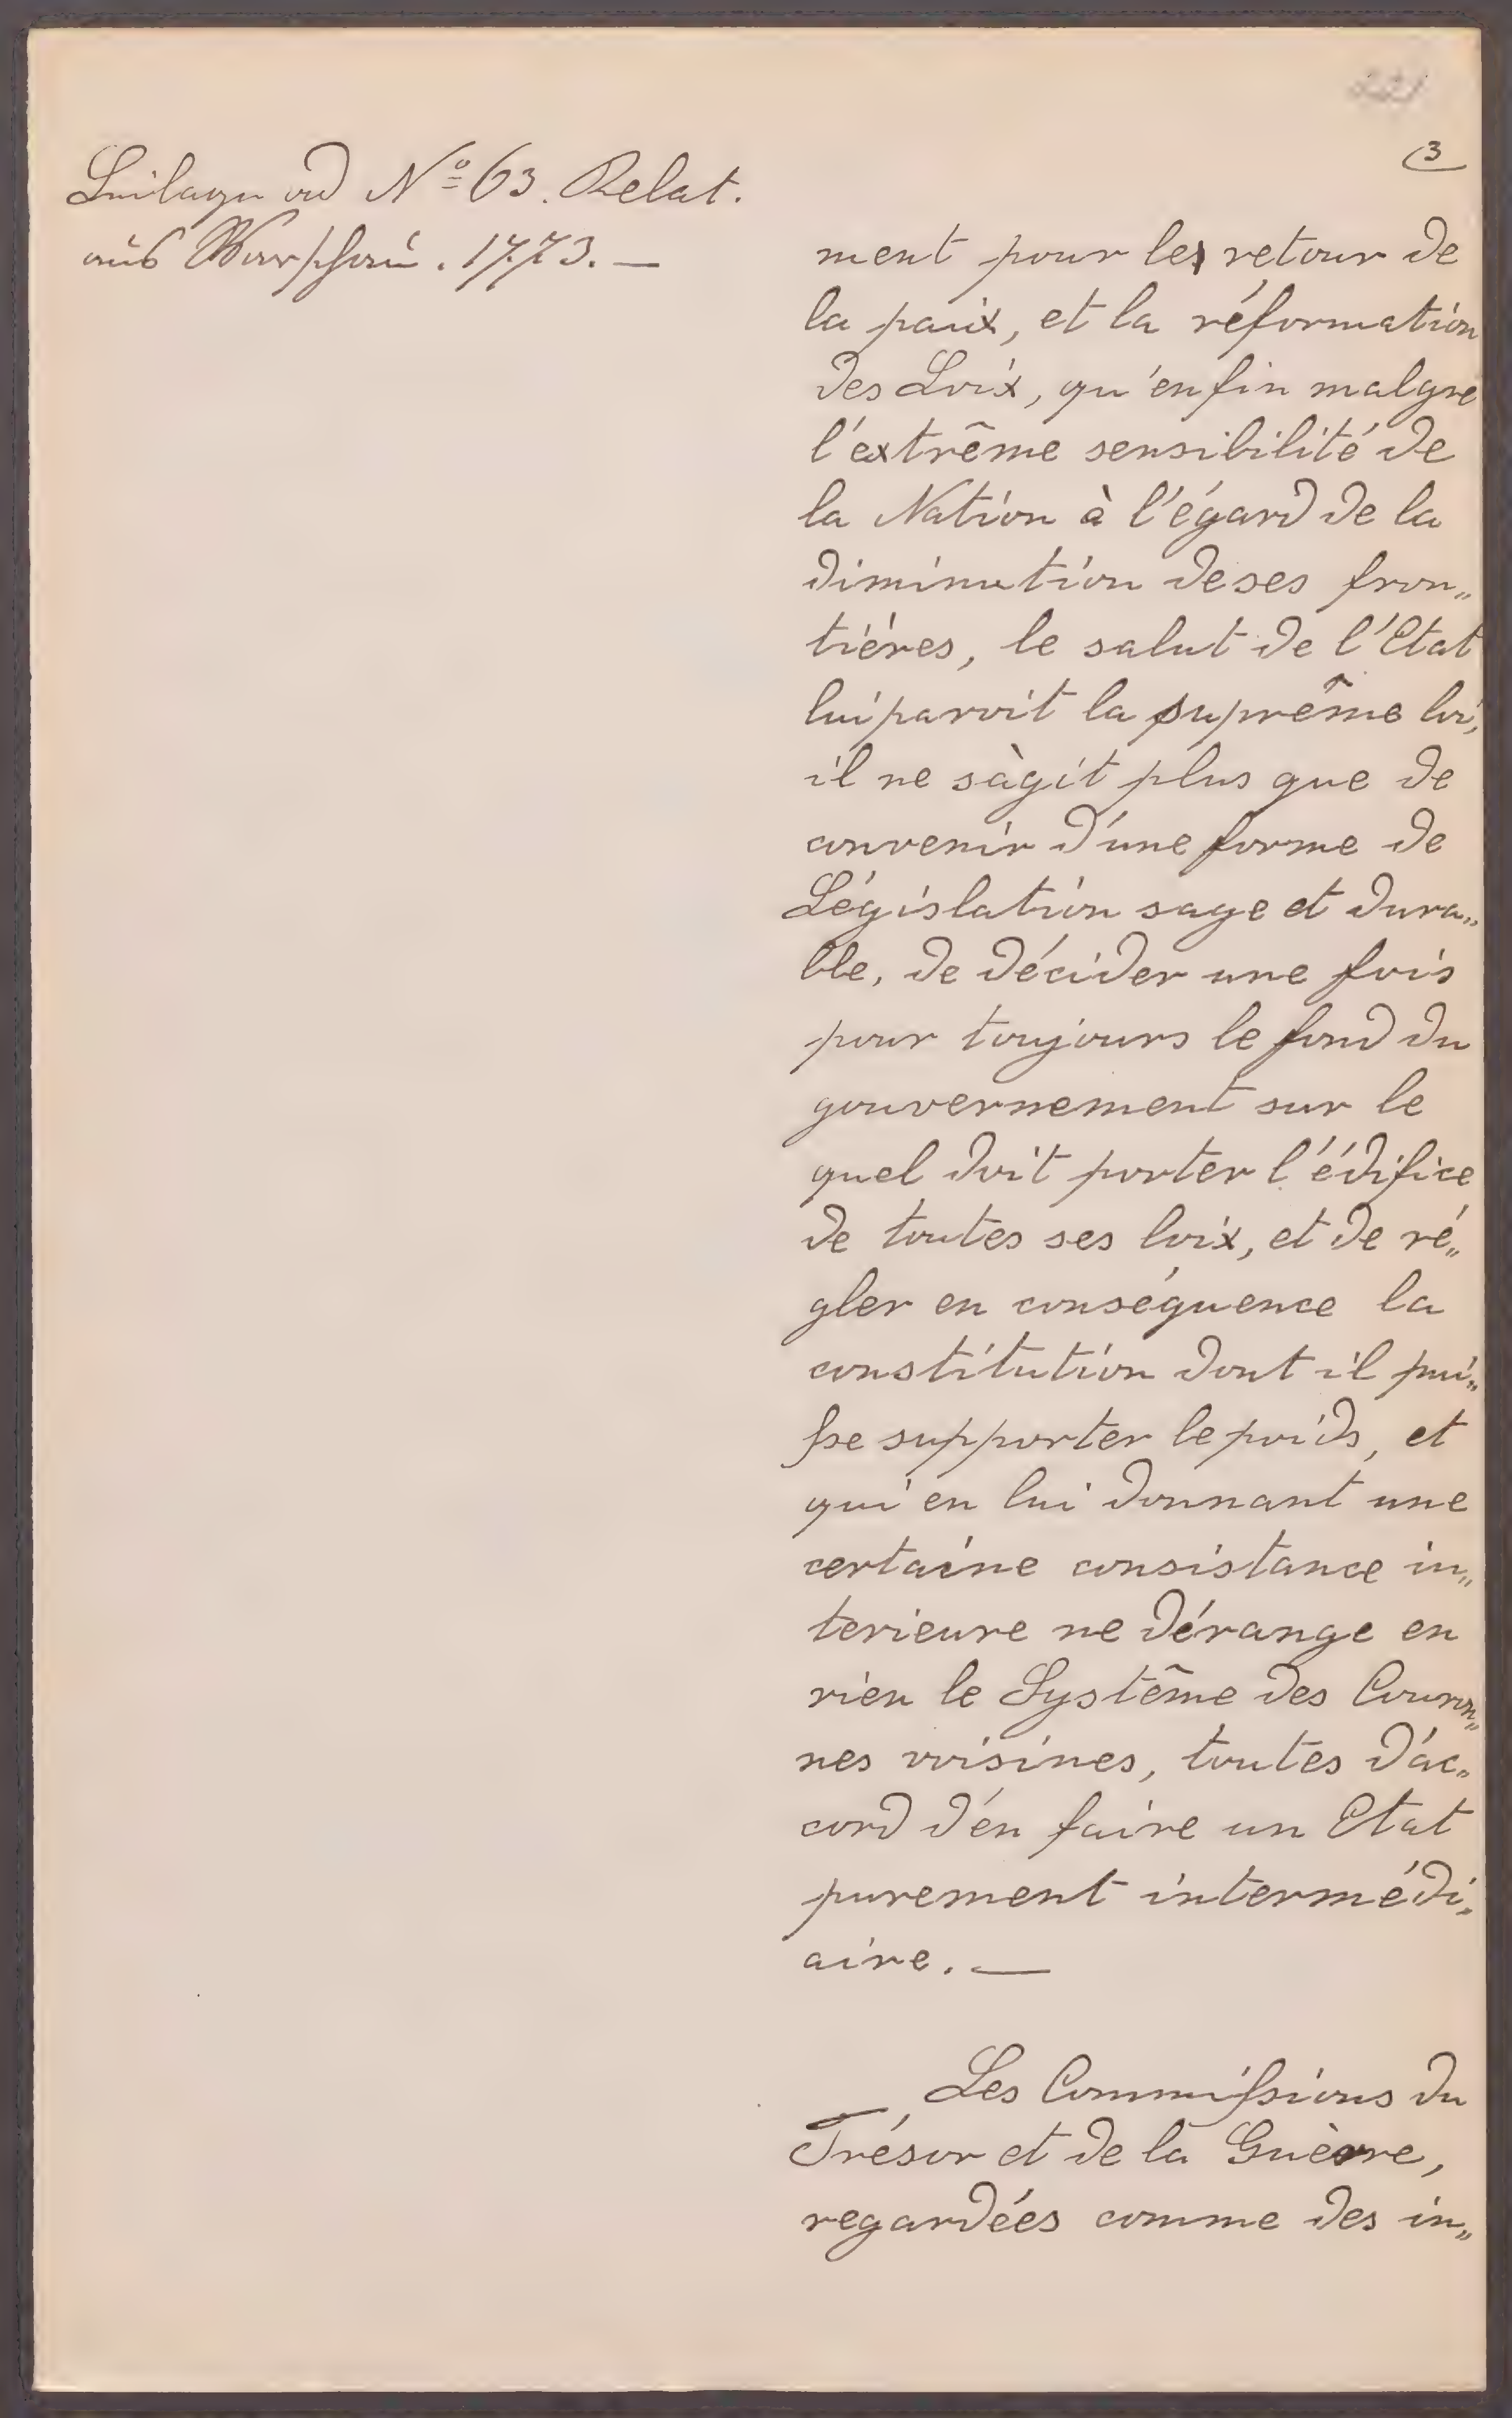 221
3
Beilage ad Nº 63. Relat.
aus Warschau. 1773. —
ment pour les retour de
la paix, et la réformation
des Loix, qu'enfin malgré
l'extrême sensibilité de
la Nation à l'égard de la
diminution de ses fron„
tiéres, le salut de l'Etat
lui paroit la suprême loi,
il ne sàgit plus que de
convenir d'une forme de
Législation sage et dura„
ble, de décider une fois
pour toujours le fond du
gouvernement sur le
quel doit porter l'édifice
de toutes ses loix, et de ré„
gler en conséquence la
constitution dont il pui„
sse supporter le poids, et
qui en lui donnant une
certaine consistance in„
terieure ne dérange en
rien le Systême des Couron„
nes voisines, toutes d'ac„
cord d'en faire un Etat
purement intermédi„
aire. —
Les Commissions du
Trésor et de la Guèrre,
regardées comme des in„